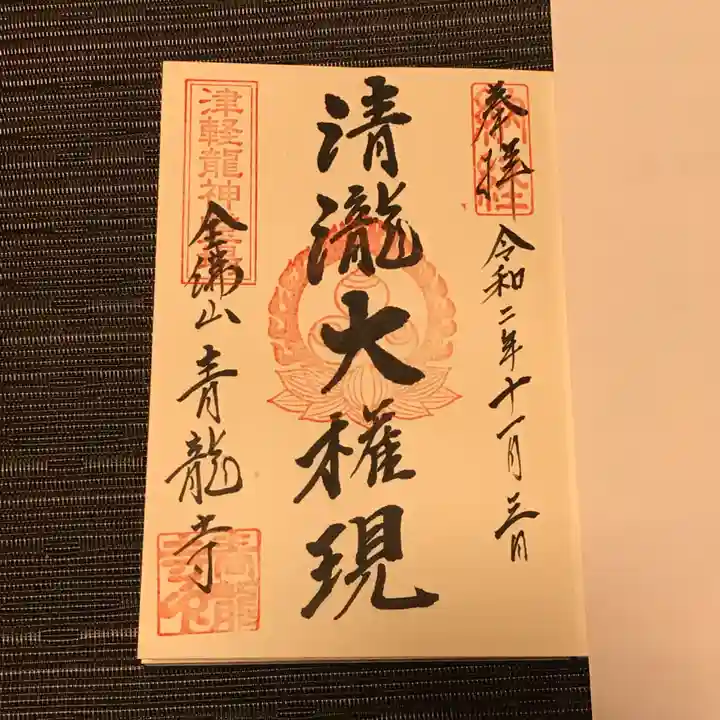 奉拝
納経
令和二年十一月三日
清瀧大権現
津軽龍神霊場
全佛山
青龍寺